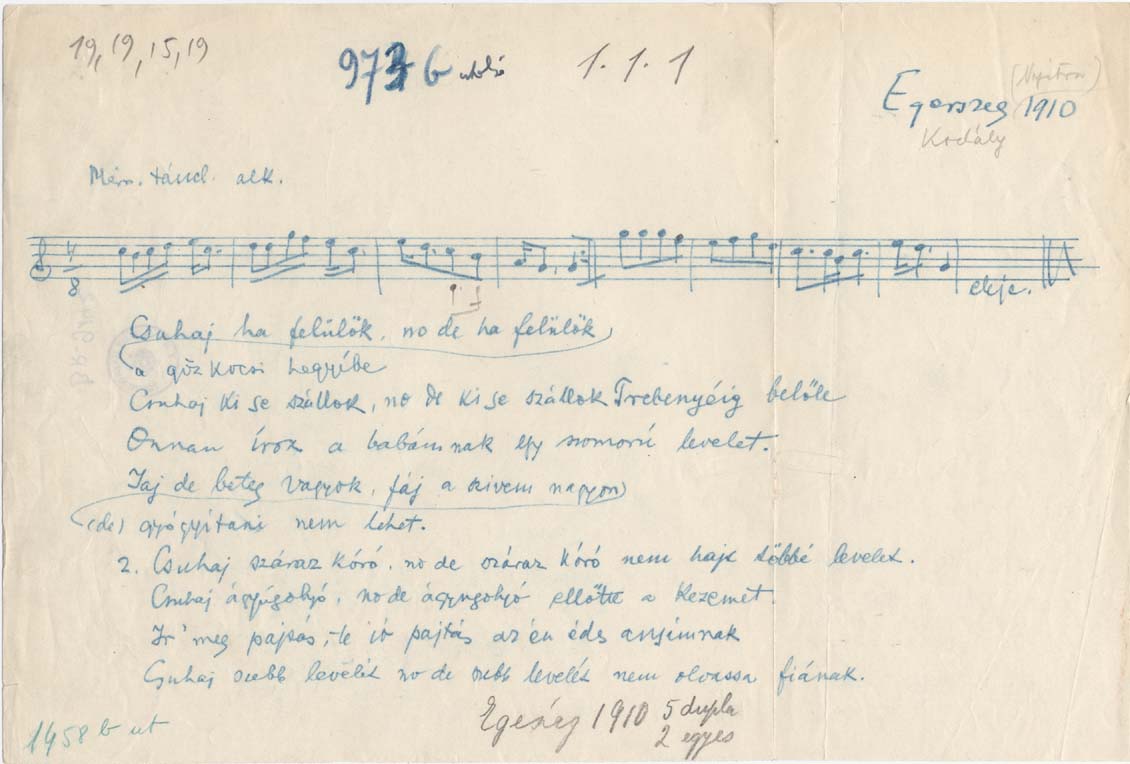 19, 19, 15, 19
973 b utolsó
1. 1. 1
(Nyitra)
Egerszeg 1910
Kodály
alk.
4
8
eleje.
Csuhaj ha felülök, no de ha felülök
a gőzkocsi hegyibe
Csuhaj ki se szállok, no de ki se szállok Trebenyéig belőle
Onnan írok a babámnak egy szomorú levelet.
Jaj de beteg vagyok, fáj a szivem nagyon
(de) gyógyítani nem lehet.
2. Csuhaj száraz kóró, no de száraz kóró nem hajt többé levelet.
Csuhaj ágyúgolyó, no de ágyugolyó ellőtte a kezemet.
Ir' meg pajtás, te jó pajtás az én édes anyámnak
Csuhaj szebb levelét no de szebb levelét nem olvassa fiának.
Egerszeg 1910 5 dupla
2 egyes
1958 b ut